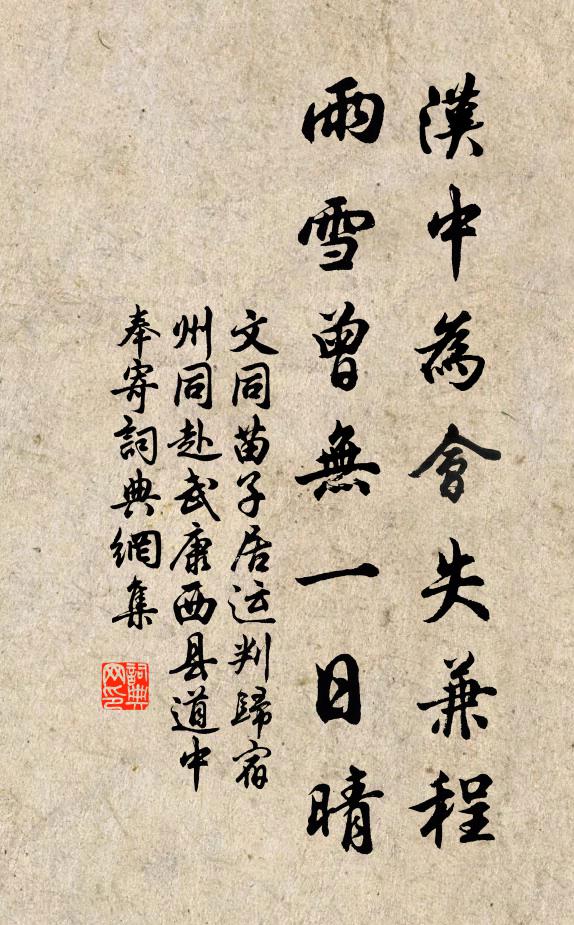 漢中為會失兼程
雨雪曾無一日晴
文同苗子居运判歸宿
州同赴武康西县道中
奉寄詞典網集
詞典网印